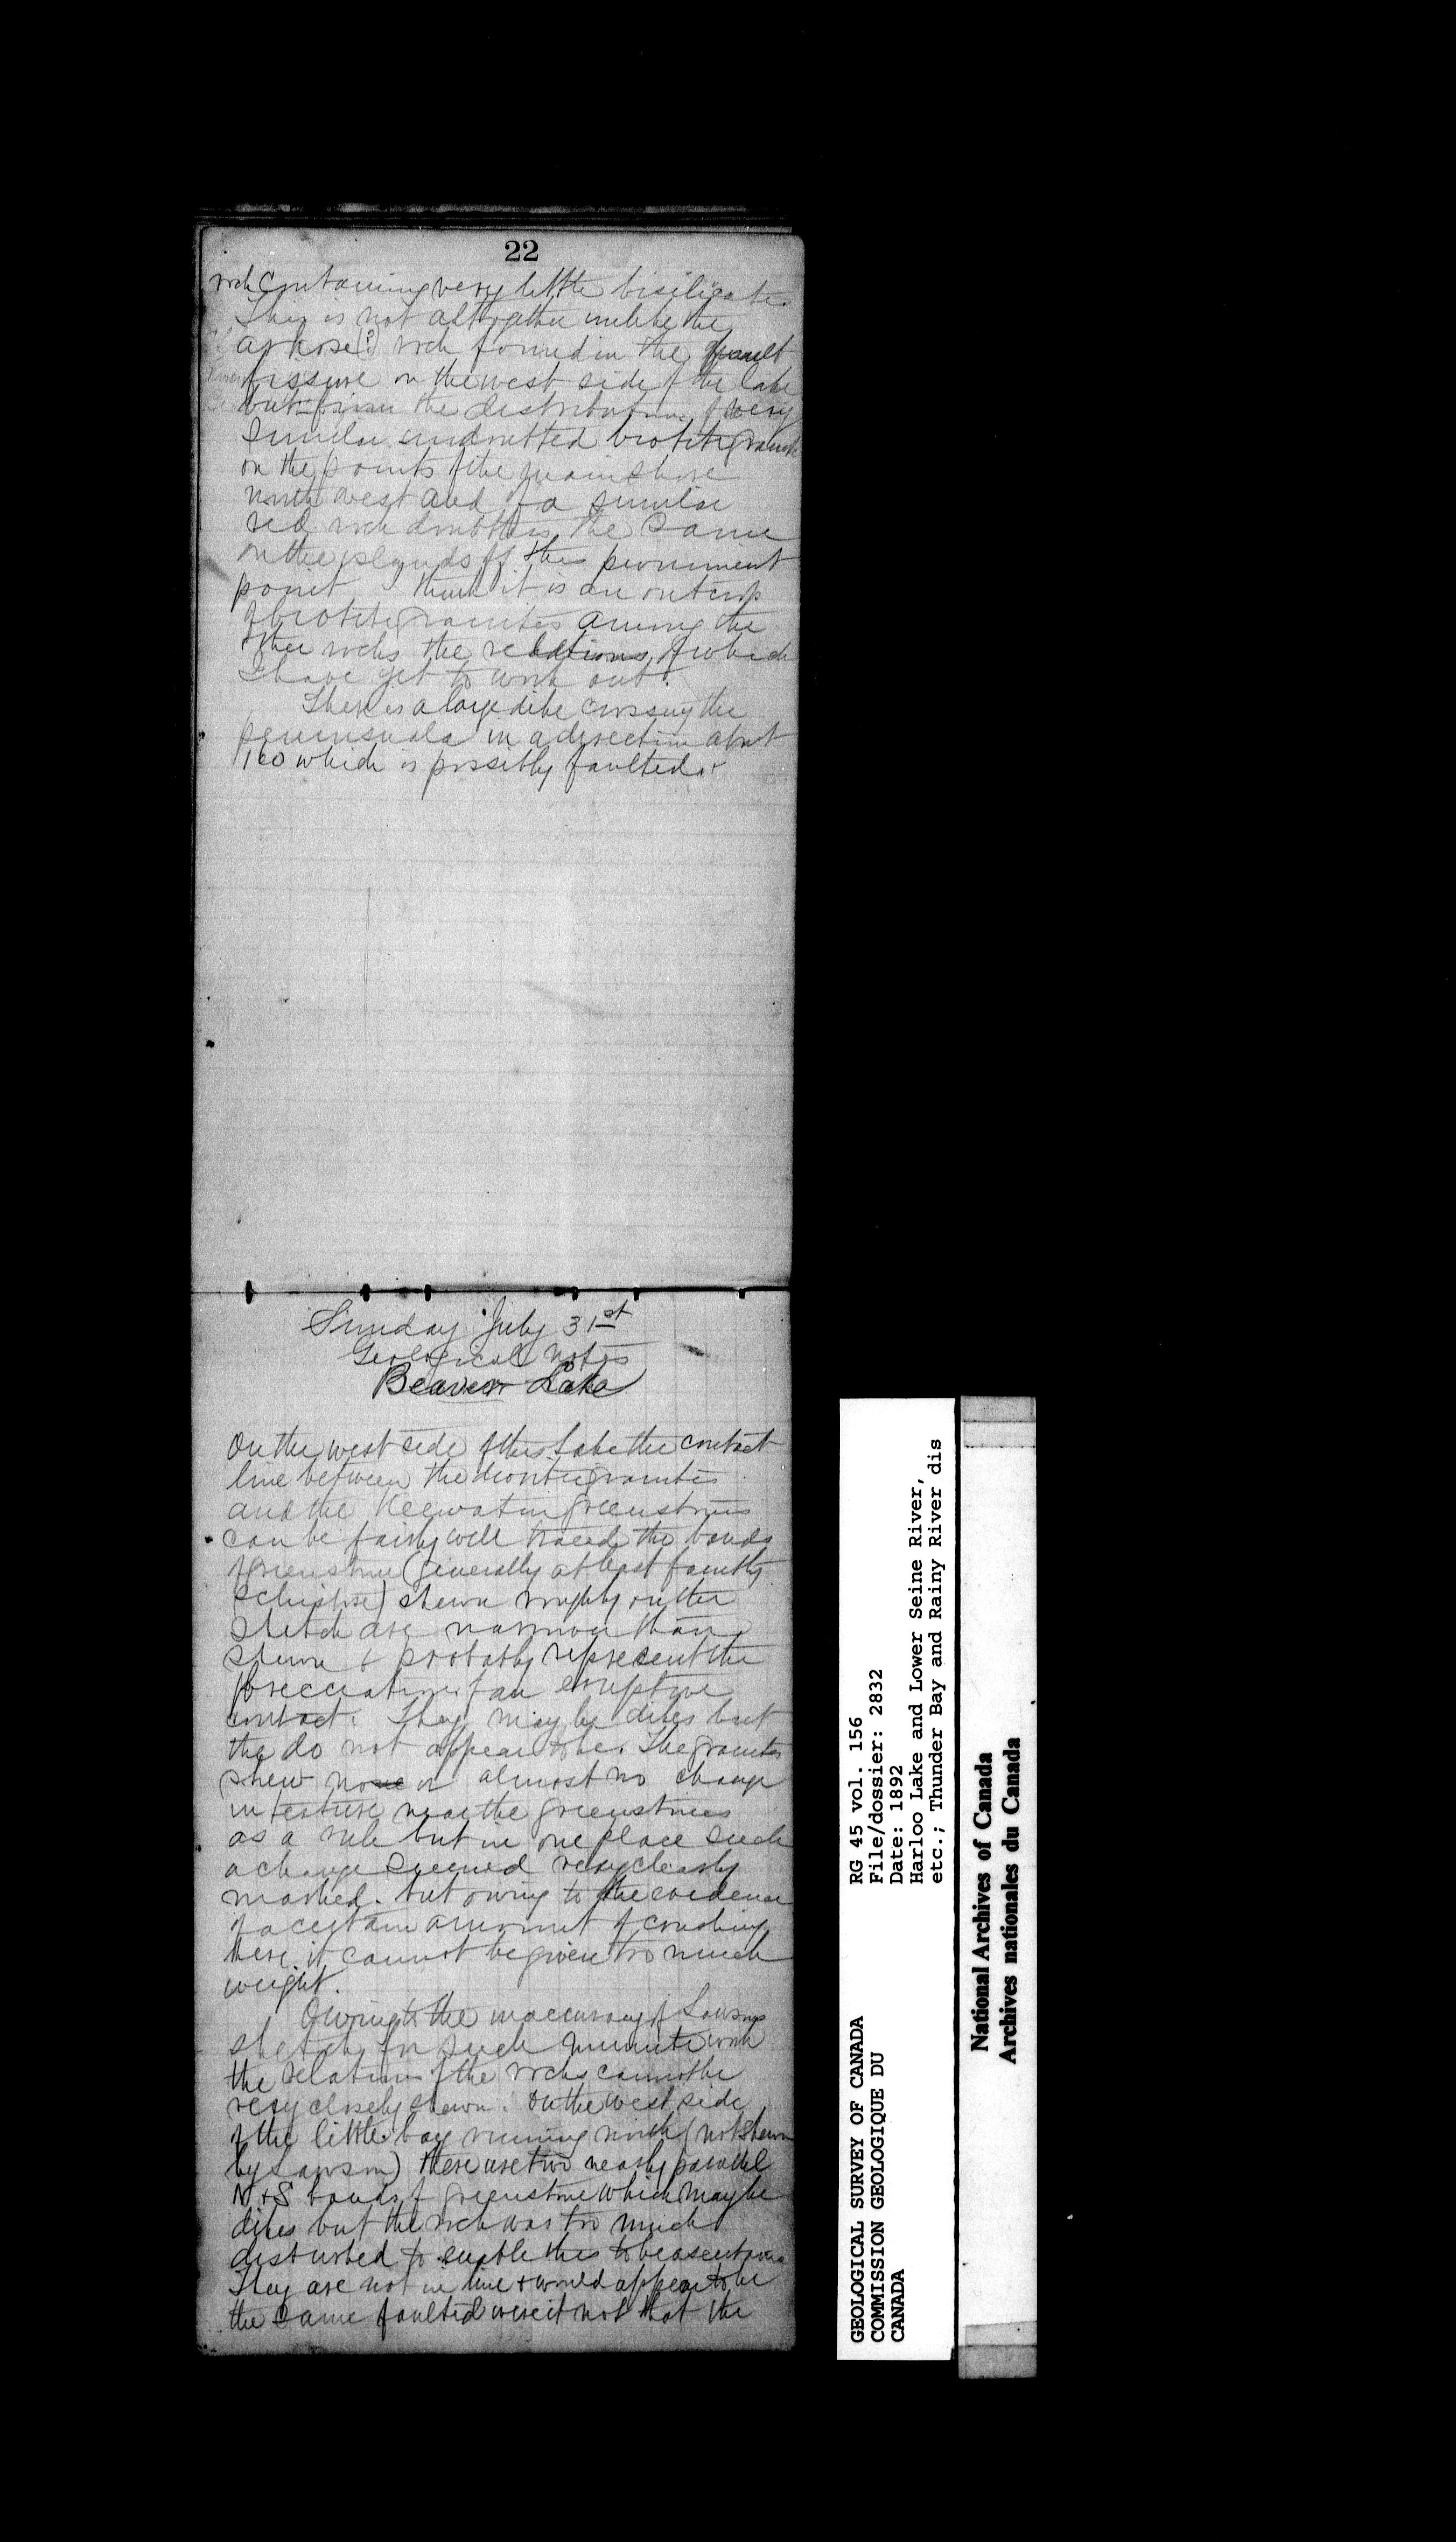 22
rock containing very little bisilicate.
This is not altogether unlike the
arkose(?) rock found in the fault
fissure on the west side of the lake
but from the distribution of very
similar undoubted biotite granite
on the points of the main shore
north west and of a similar
red rock doubtless the same
on the islands off this prominent
point I think it is an outcrop
of biotite granites among the
other rocks the relations of which
I have yet to work out.
There is a large dike crossing the
peninsula in a direction about
160 which is possibly faulted.
Sunday July 31st
Geological Notes
Beaver Lake
On the west side of this Lake the contact
line between the granites
and the Keewatin greenstones
can be fairly well traced the bands
of greenstone (generally at least faintly
schistose) shewn roughly on the
sketch are narrower than
shewn & probably represent the
brecciation of an eruptive
contact. They may be dikes but
the do not appear to be. The granites
shew no or almost no change
in texture near the greenstones
as a rule but in one place such
a change seemed very clearly
marked. but owing to the evidence
of a certain amount of crushing
here it cannot be given too much
weight.
Owing to the inaccuracy of Lawsons
sketch for such minute work
the relations of the rocks cannot be
very closely shewn. On the west side
of the little bay running north (not shewn
by Lawson) there are two nearly parallel
N & S bands of greenstone which may be
dikes but the rock was too much
disturbed to enable this to be ascertained
They are not in line & would appear to be
the same faulted were it not that the
RG 45 vol. 156
File/dossier: 2832
Date: 1892
Harloo Lake and Lower Seine River,
etc.; Thunder Bay and Rainy River dis
GEOLOGICAL SURVEY OF CANADA
COMMISSION GEOLOGIQUE DU
CANADA
National Archives of Canada
Archives nationales du Canada